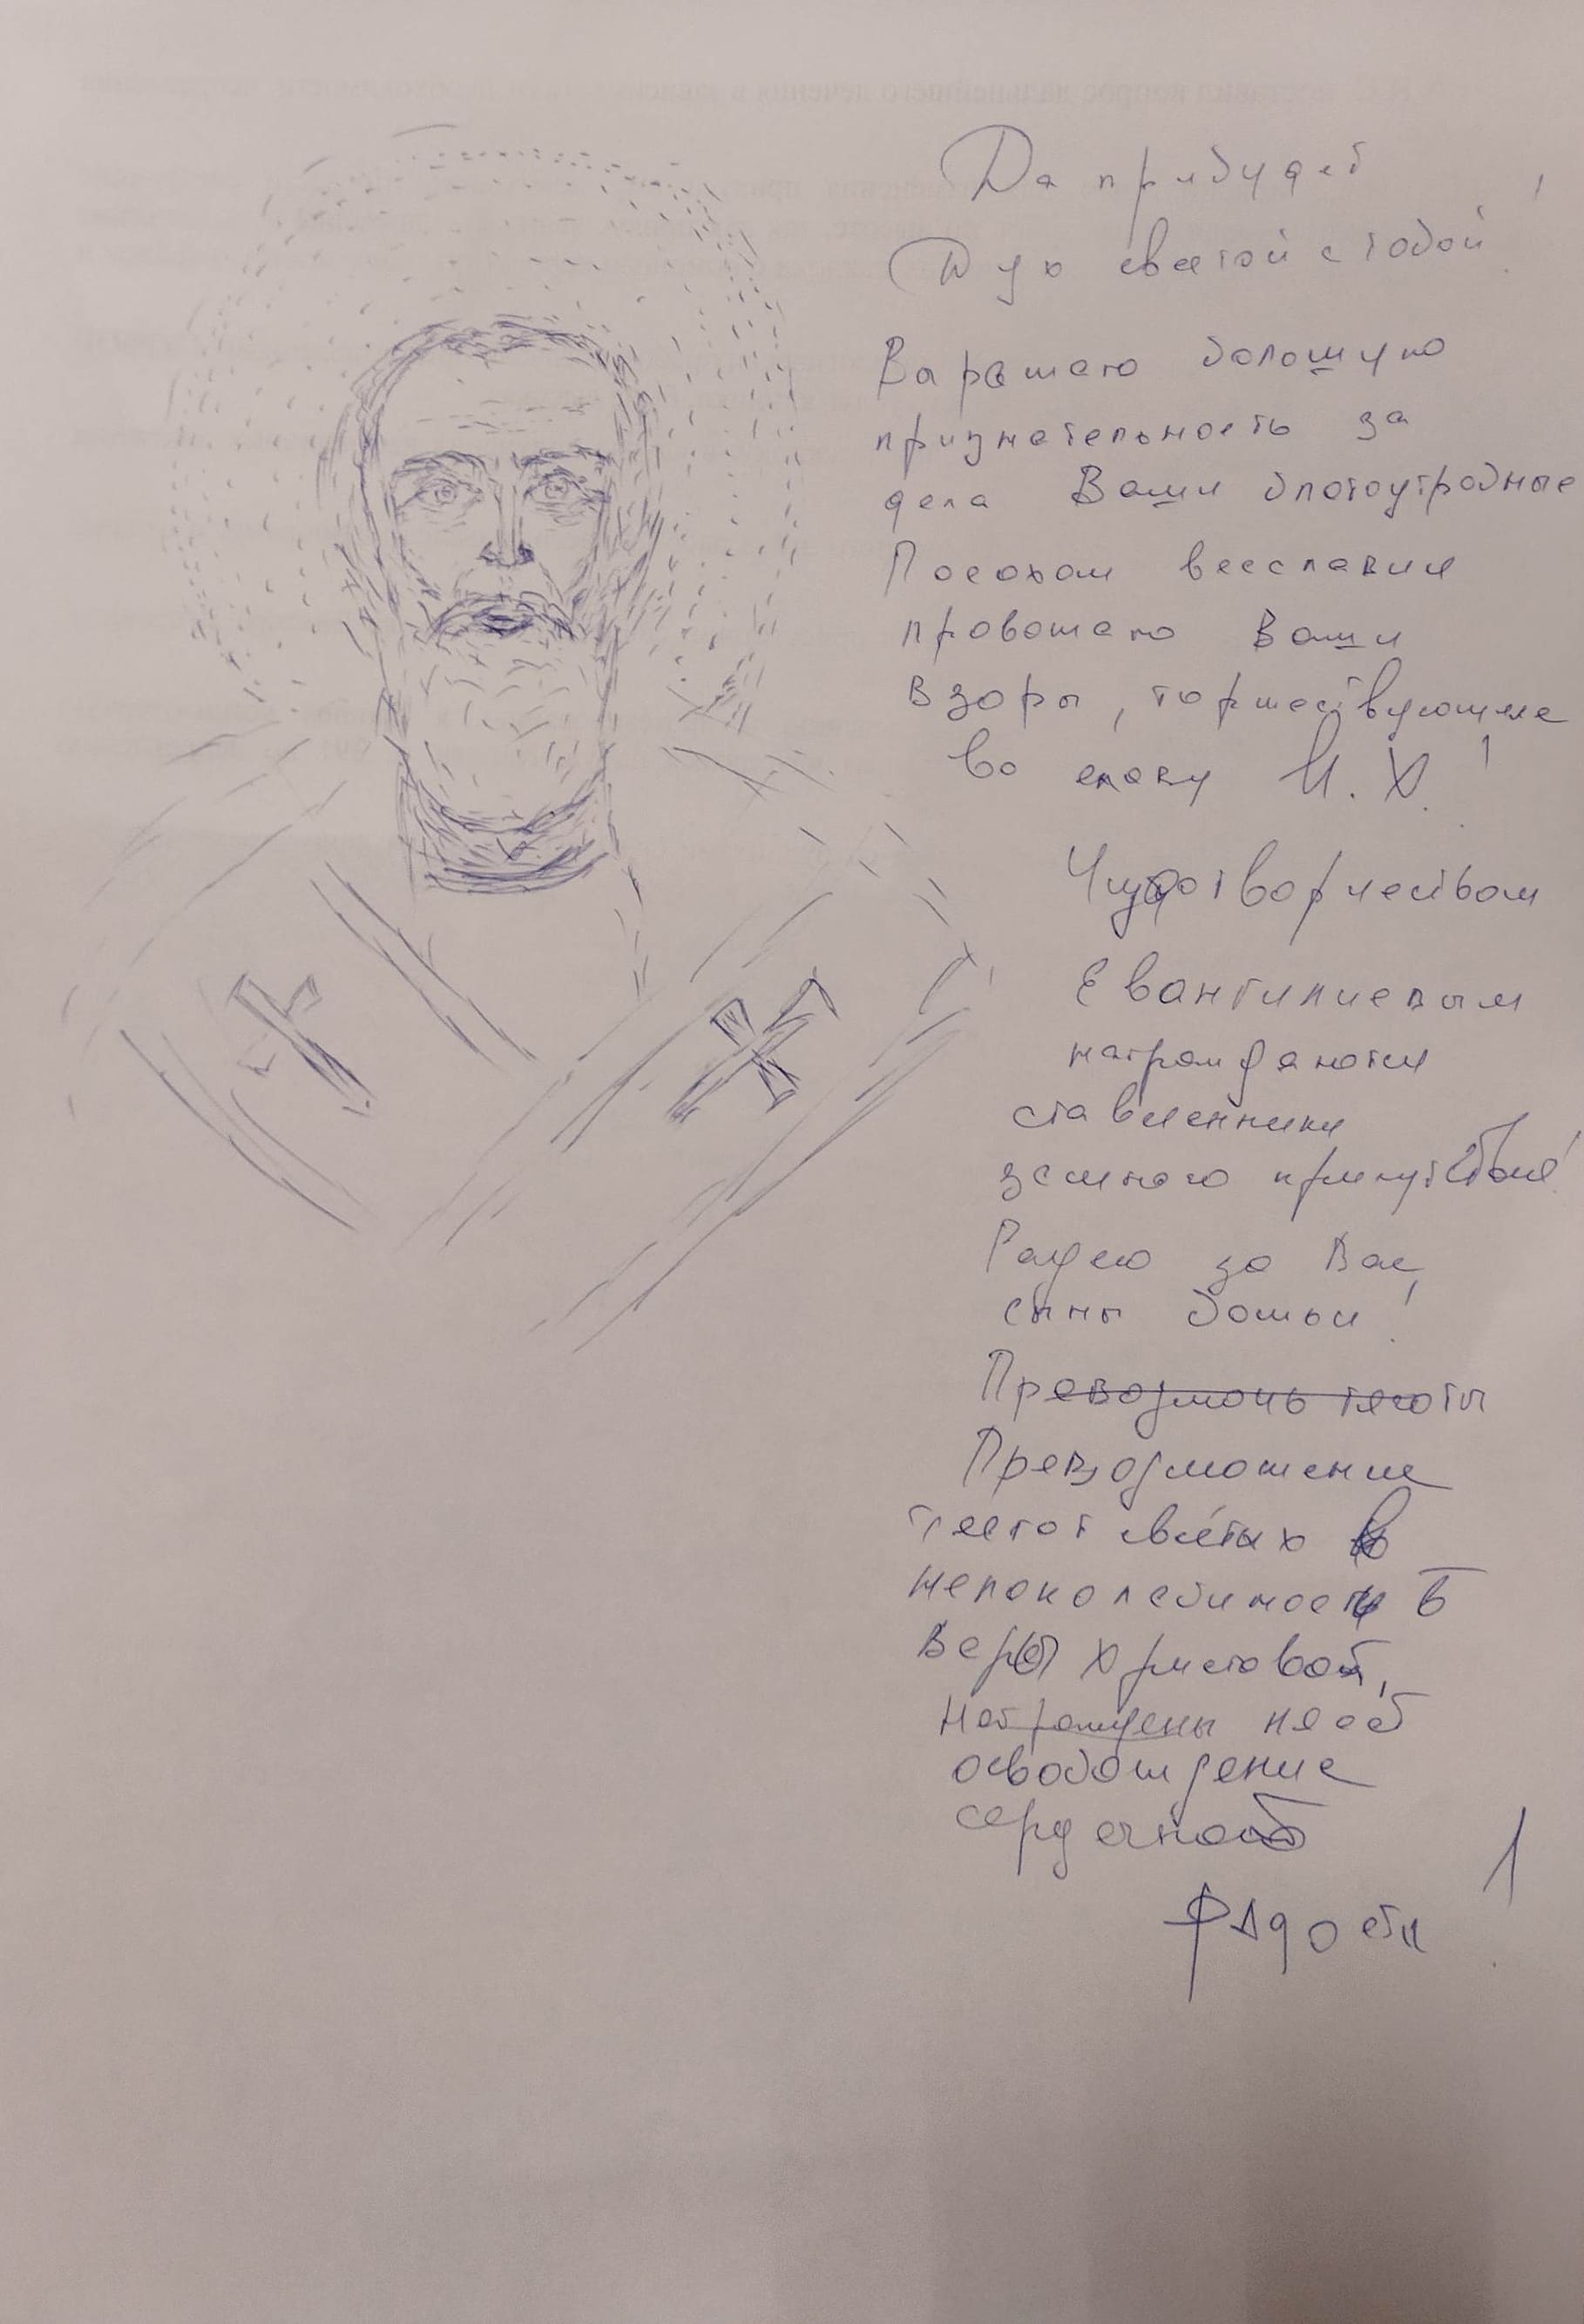 Да прибудет
Дух святой с тобой!
Выражаю большую
признательность за
дела Ваши благоутробные
Посохом всеславия
провожаю Ваши
взоры, торжествующие
во славу И. Х.!
Чудотворчеством
Евангилиевым
награждаются
ставленники
земного присутствия!
Радею за Вас,
сыны божьи!
Превозмочь тяготы
Превозможение
тягот святых в
непоколебимости в
веры Христовой,
награждены
освобождение
сердечной
радости!